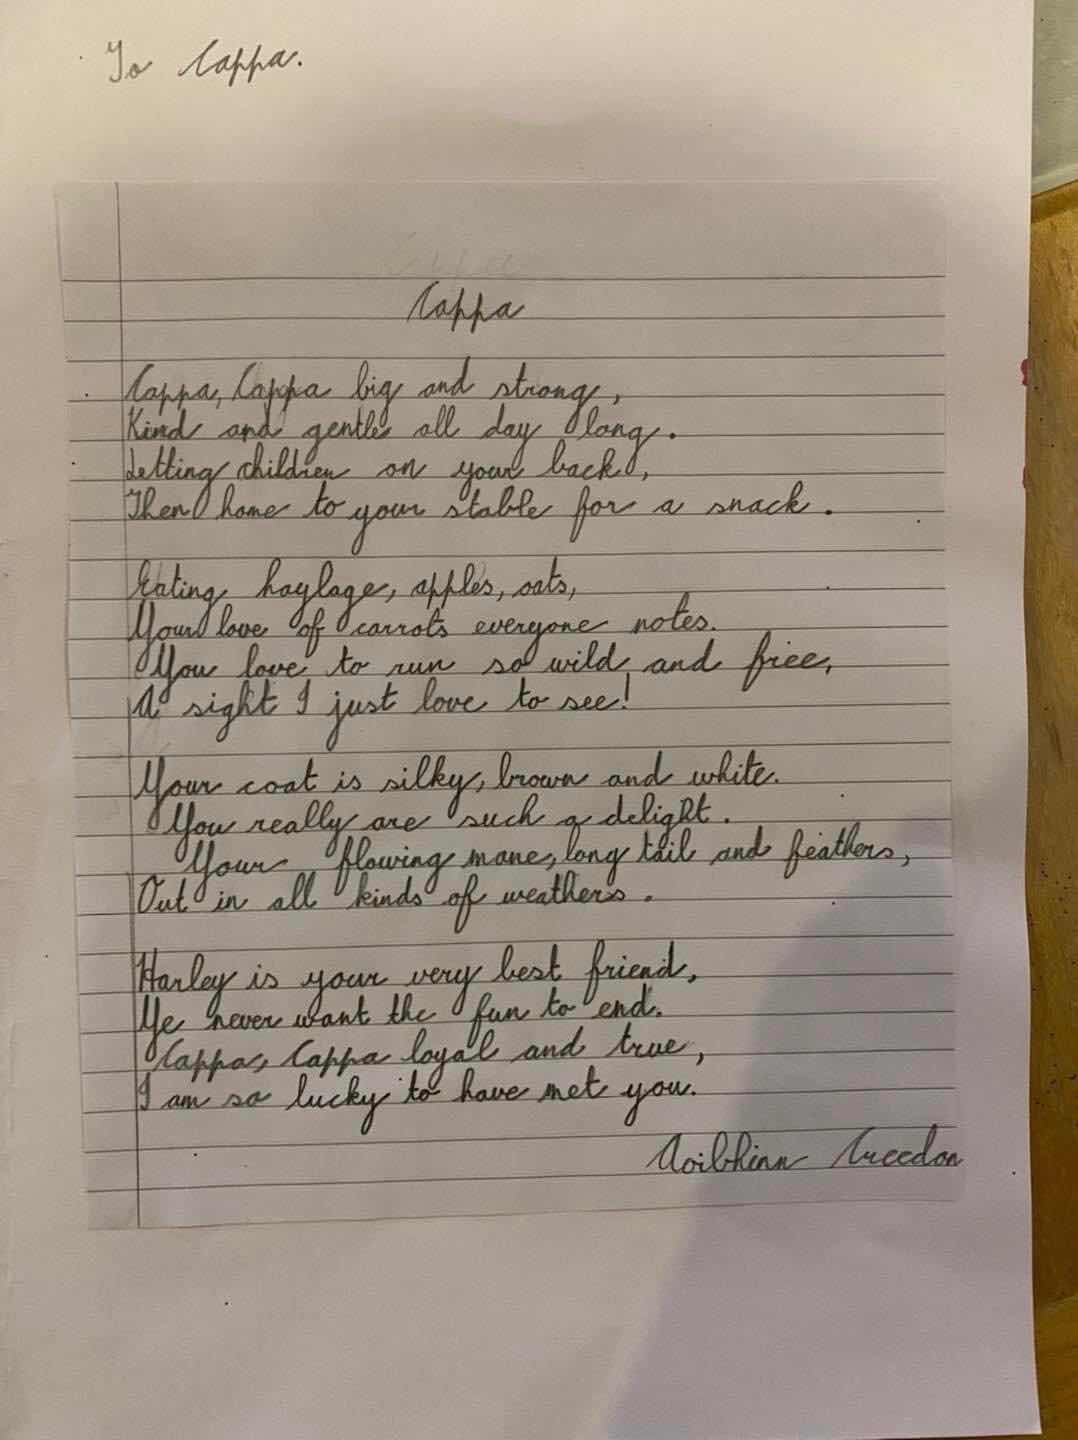 To Cappa.
Cappa
Cappa, Cappa big and strong,
Kind and gentle all day long.
Letting children on your back,
Then home to your stable for a snack.
Eating haylage, apples, oats,
Your love of carrots everyone notes.
You love to run so wild and free,
A sight I just love to see!
Your coat is silky, brown and white.
You really are such a delight.
Your flowing mane, long tail and feathers,
Out in all kinds of weathers.
Harley is your very best friend,
Ye never want the fun to end.
Cappa, Cappa loyal and true,
I am so lucky to have met you.
Aoibhinn Creedon